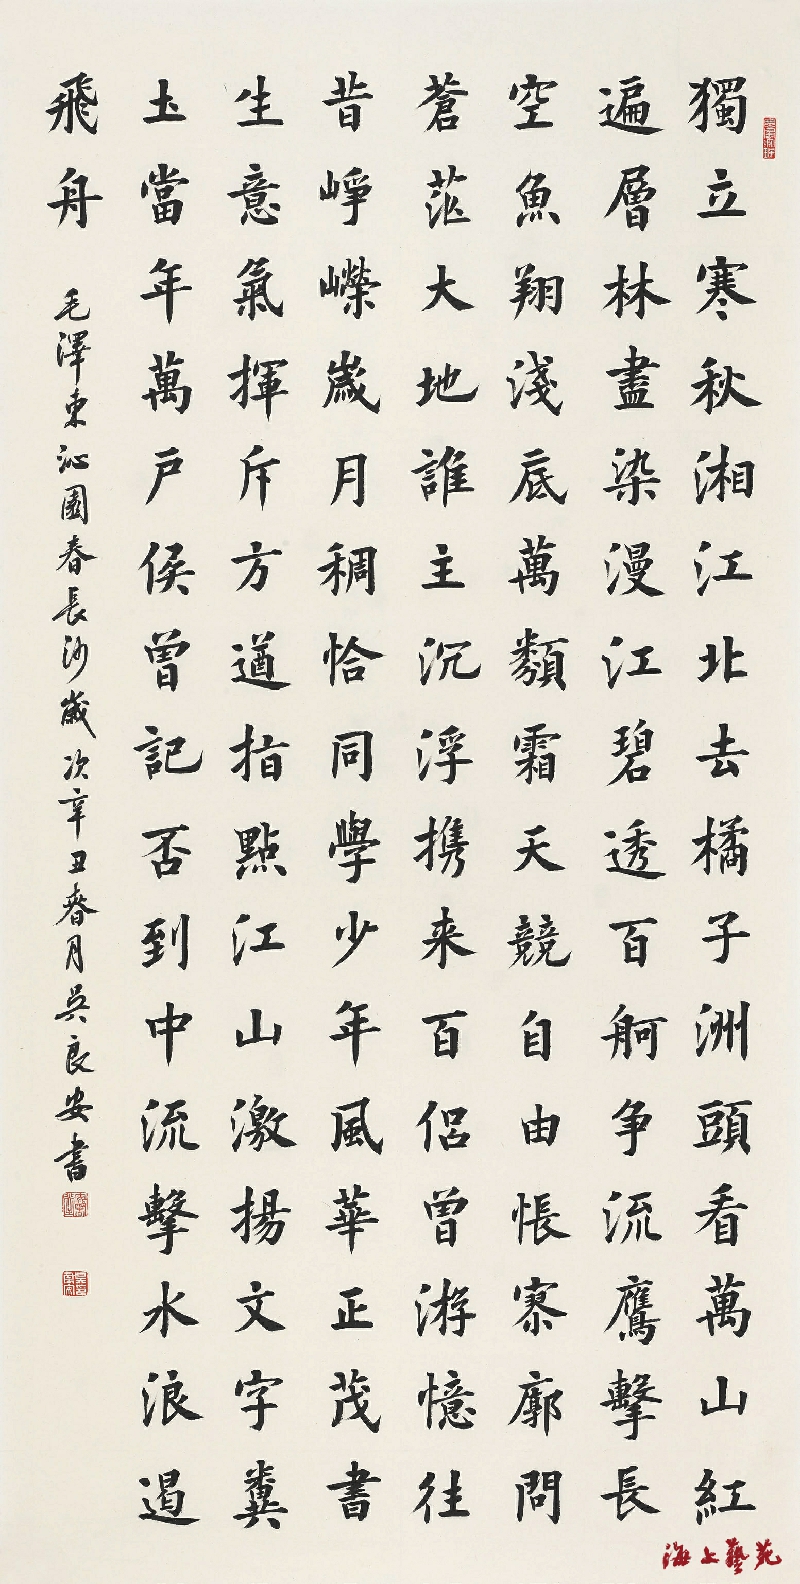 獨立寒秋湘江北去橘子洲頭看萬山紅
遍層林盡染漫江碧透百舸争流鷹擊長
空魚翔淺底萬類霜天競自由悵寥廓問
蒼茫大地誰主沉浮携来百侣曾游憶往
昔崢嶸歲月稠恰同學少年風華正茂書
生意氣揮斥方遒指點江山激揚文字糞
土當年萬户侯曾記否到中流擊水浪遏
飛舟 毛澤東沁園春長沙歲次辛丑春月吳良安書
海上藝苑